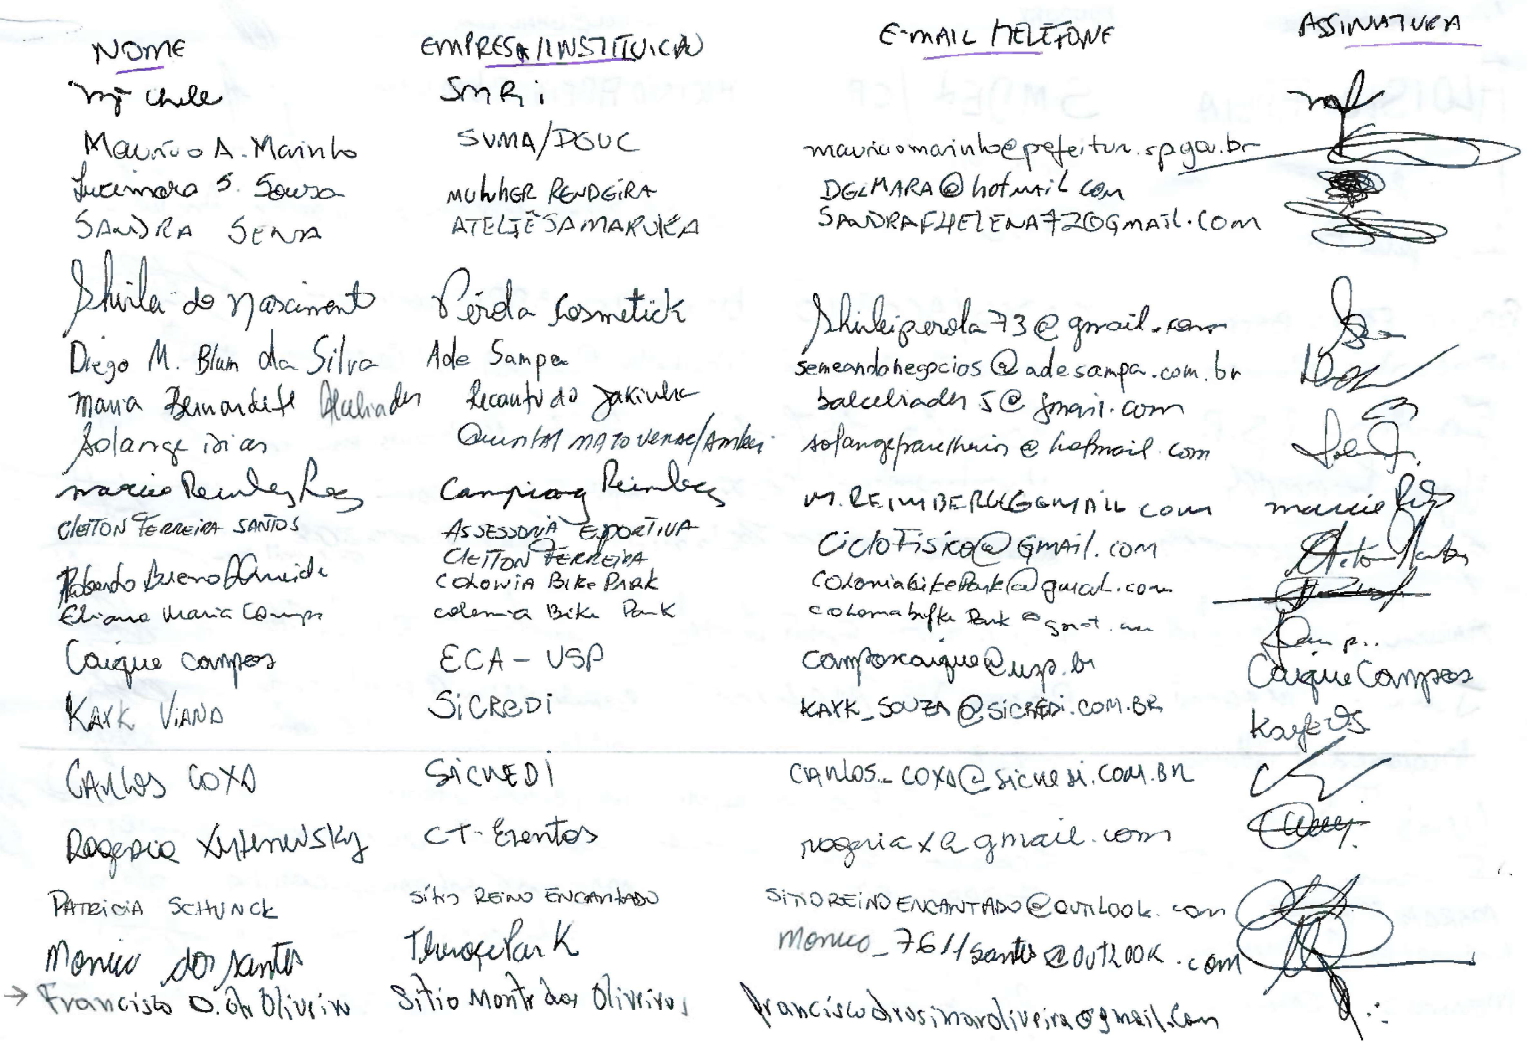 NOME EMPRESA/INSTITUIÇÃO E-MAIL/TELEFONE ASSINATURA
Michele SMRi
Maurício A. Marinho SVMA/DGUC mauriciomarinho@prefeitur.sp.gov.br
Lucimara S. Sousa MULHER RENDEIRA DELMARA@hotmail.com
SANDRA SENA ATELIÊ SAMARUKA SANDRAFHELENA72@GMAIL.COM
Shirlei do Nascimento Pérola Cosmetick Shirleiperola73@gmail.com
Diego M. Blum da Silva Ade Sampa semeandonegocios@adesampa.com.br
Maria Bernardete Recanto do balceliades5@gmail.com
Solange Dias Quintal MATO VERDE/ @hotmail.com
Marcio Reimberg Camping Reimberg M.REIMBERG@GMAIL.com marcio
CLEITON FERREIRA SANTOS ASSESSORIA ESPORTIVA
CLEITON FERREIRA CicloFisico@GMAIL.COM
Roberto Bueno Almeida COLONIA BIKE PARK ColoniabikePark@gmail.com
Eliane Maria Campos colonia Bike Park
Caique Campos ECA - USP camposcaique@usp.br Caique Campos
KAYK VIANA SiCREDi KAYK_SOUZA@SICREDI.COM.BR
CARLOS COXA SiCREDI CARLOS_COXA@SICREDI.COM.BR
Rogeria CT-Eventos rogeriax@gmail.com
PATRICIA SCHUNCK Sítio REINO ENCANTADO SITIOREINOENCANTADO@OUTLOOK.com
Monica dos Santos Park Monica_7611santos@OUTLOOK.com
→ Francisco D. de Oliveira Sítio Monte das Oliveiras franciscodrosimaroliveira@gmail.com